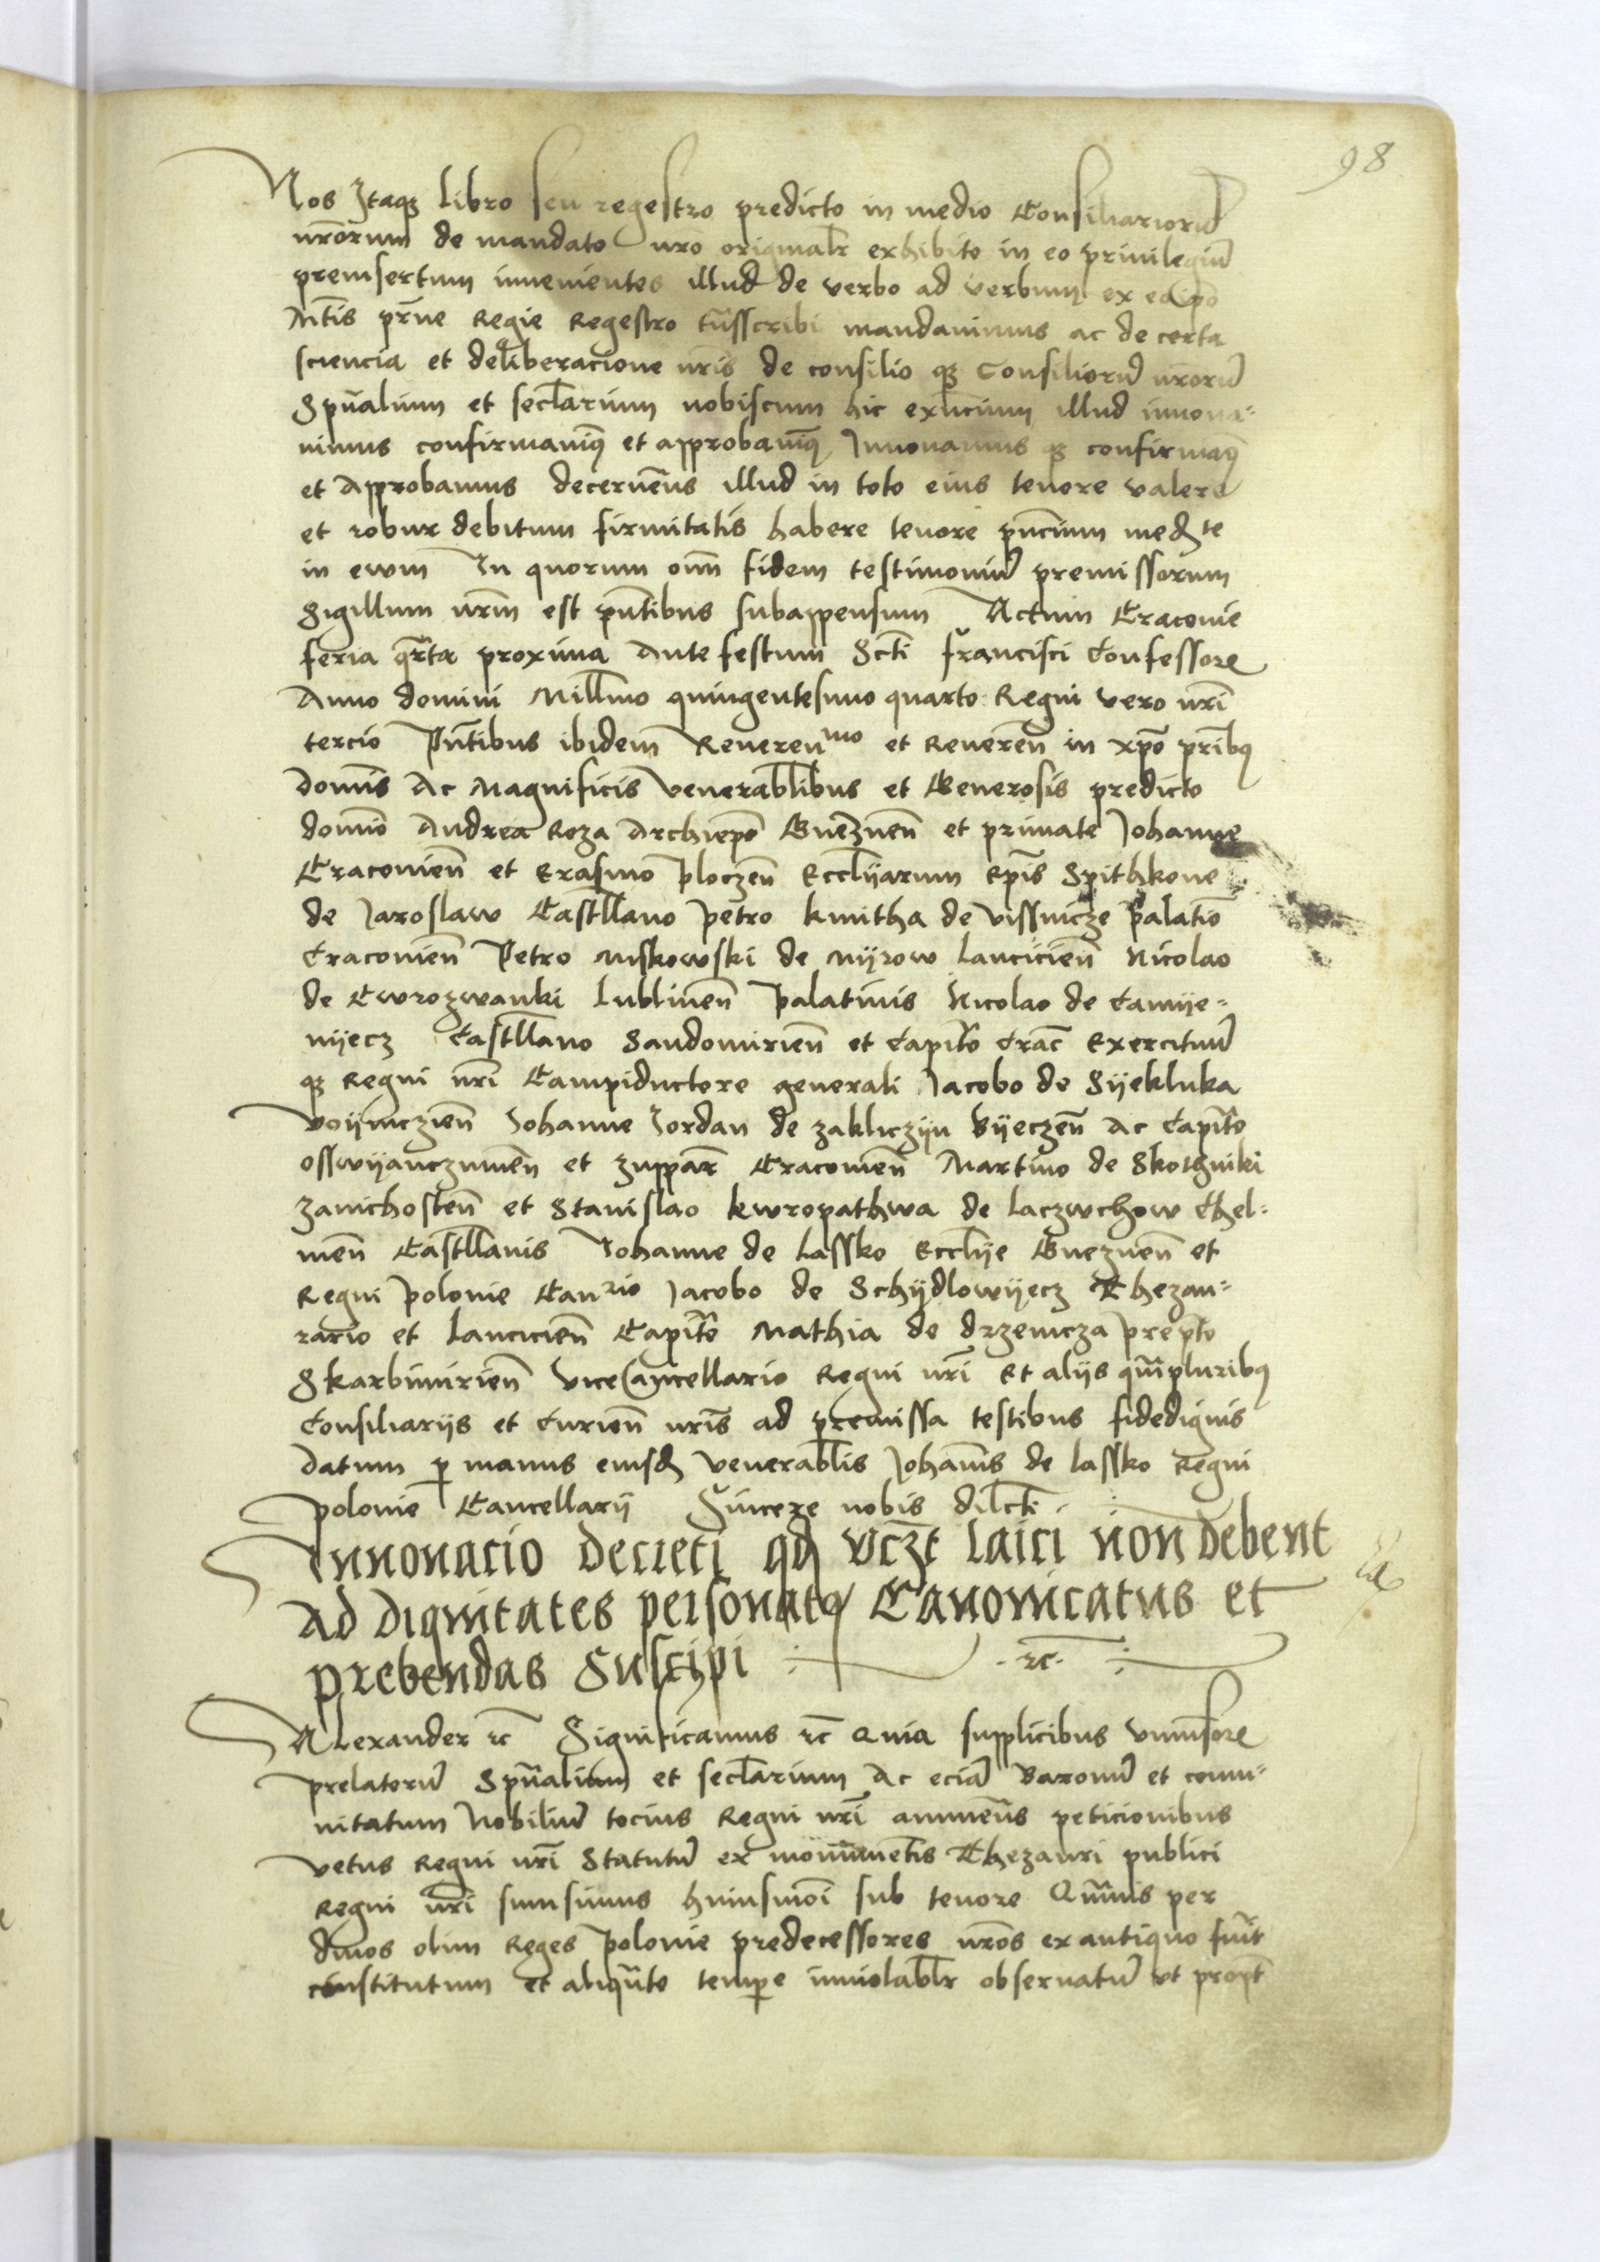 98
Nos Itaqз libro seu regestro predicto in medio Consiliariorū
nr̄orum de mandato nr̄o originalr̄ exhibito in eo priuilegiū
preinsertum inuenientes illud de verbo ad verbum ex eoip̄o
Mtīs pr̄ne Regie Regestro tn̄sscribi mandauimus ac de certa
sciencia et deliberacione nr̄is de consilio qз Consiliorū nr̄orū
Spūalium et seclarium nobiscum hic exn̄cium illud innoua-
uimus confirmauimꝰ et approbauimꝰ Innouamus qз confirmamꝰ
et Approbamus decernen̄s illud in toto eius tenore valere
et robur debitum firmitatis habere tenore pn̄cium med te
in ewm In quorum om̄ fidem testimoniū premissorum
Sigillum nr̄m est pn̄tibus subappensum Actum Cracouie
feria qr̄ta proxima Ante festum Scti francisci Confessore
Anno domini Mill̄imo quingentesimo quarto Regni vero nr̄i
tercio Pn̄tibus ibidem Reueren mo et Reueren̄ in xp̄o pr̄ibꝰ
domīs Ac Magnificis Venerablibus et Generosis predicto
domīo Andrea Roza Archiep̄o Gneznen̄ et primate Johanne
Cracouien̄ et Erasmo ploczen̄ Eccl̄iarum Ep̄is Spithkone
de Jaroslaw Castll̄ano Petro kmitha de vissnicze palatīo
Cracouien̄ Petro Miskowski de Mijrow lancicien̄ Nicolao
de Cwrozwanki lublinen̄ palatinis Nicolao de Camije-
nijecz Castll̄ano Sandomirien̄ et Capitō Crac̄ Exercituū
qз Regni nr̄i Campiductore generali Jacobo de Sijekluka
Voijniczien̄ Johanne Jordan de zakliczijn Bijeczen̄ Ac Capitō
osswijanczimen̄ et zuppar̄ Cracouien̄ Martino de Skothniki
zawichosten̄ et Stanislao kwropathwa de laczwchow Chel-
men̄ Castll̄anis Johanne de lassko Eccl̄ie Gneznen̄ et
Regni polonie Canrio Jacobo de Schijdlowijecz Thezau-
rario et lancicien̄ Capitō Mathia de drzewicza prep̄to
Skarbimirien̄ Vicecancellario Regni nr̄i Et alijs qm̄pluribꝰ
Consiliarijs et Curien̄ nr̄is ad premissa testibus fidedignis
datum p manus eiusd Venerablis Johan̄is de lassko Regni
polonie Cancellarij Sincere nobis dilcti
Innouacio decreti qd vczt laici non debent
Ad dignitates personatꝰ Canonicatus et
prebendas Suscipi ·rc·
Alexander rc Significamus rc Quia supplicibus vniuersore
prelatorū Spūalium et seclarium Ac eciā Baronū et comu-
nitatum Nobiliū tocius Regni nr̄i annuen̄s peticionibus
vetus Regni nr̄i Statutū ex monumentis Thezauri publici
Regni nr̄i sumsimus huiusmoi sub tenore Qm̄uis per
diuos olim Reges polonie predecessores nr̄os ex antiquo fuit
constitutum et aliqn̄to tempe inuiolablr̄ obseruatū vt propt̄